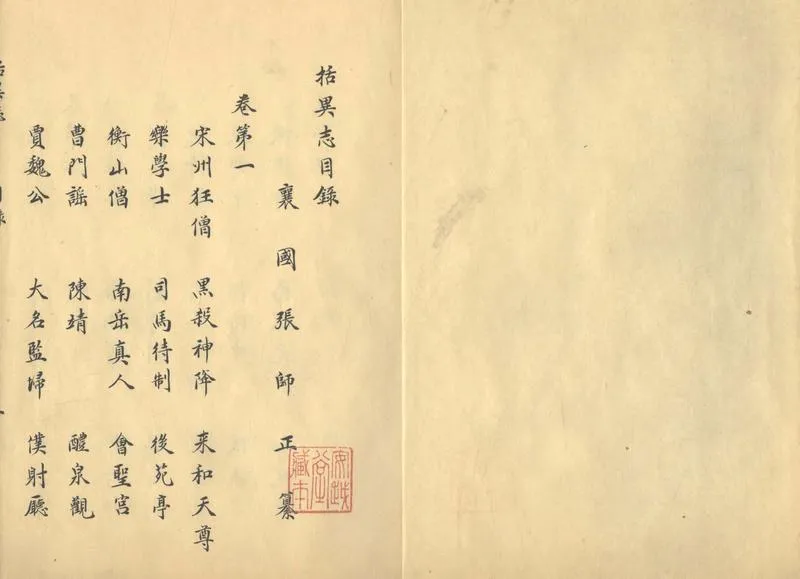 括異志目録
襄國張師正纂
卷第一
宋州狂僧 黒殺神降 来和天尊
樂學士 司馬待制 後苑亭
衡山僧 南岳真人 會聖宮
曹門謡 陳靖 醴泉觀
賈魏公 大名監埽 僕射廳
安越堂藏本